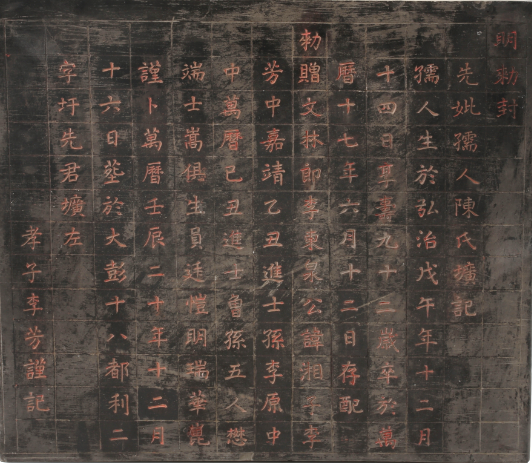 明勑封
先妣孺人陳氏壙記
孺人生於弘治戊午年十二月
十四日享壽九十三歲卒於萬
曆十七年六月十二日存配
勑贈文林郎李東泉公諱湘子李
芳中嘉靖乙丑進士孫李原中
中萬曆己丑進士魯孫五人懋
端士嵩俱生員廷愷明瑞華
謹卜萬曆壬辰二十年十二月
十六日塟於大彭十八都利二
字圩先君壙左
孝子李芳謹記